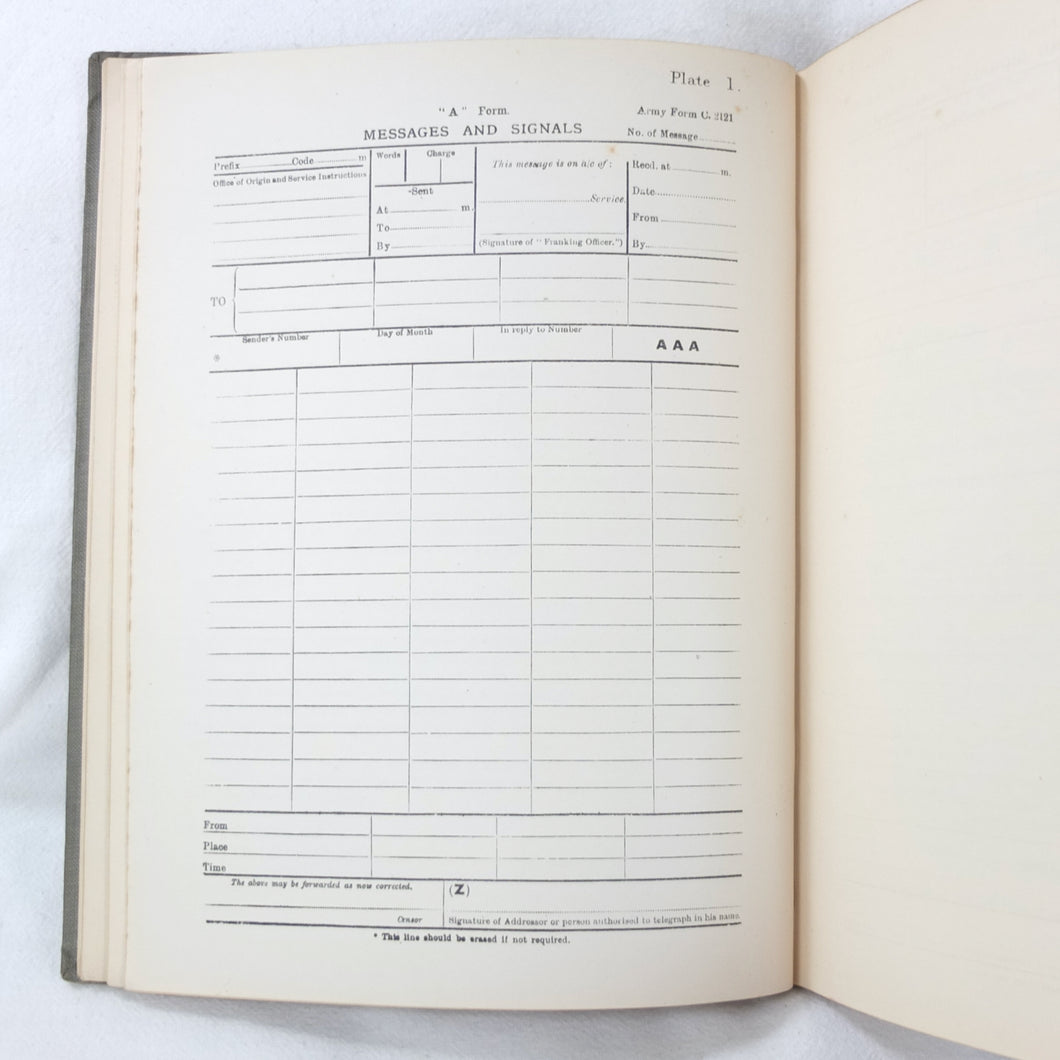 Plate 1.
"A" Form.
Army Form C. 2121
MESSAGES AND SIGNALS
No. of Message
Prefix Code m
Office of Origin and Service Instructions
Words Charge
Sent
At m.
To
By
This message is on a/c of:
Service.
(Signature of "Franking Officer.")
Recd. at m.
Date
From
By
TO
Sender's Number
Day of Month
In reply to Number
AAA
*
From
Place
Time
The above may be forwarded as now corrected.
(Z)
Censor
Signature of Addressor or person authorised to telegraph in his name.
* This line should be erased if not required.